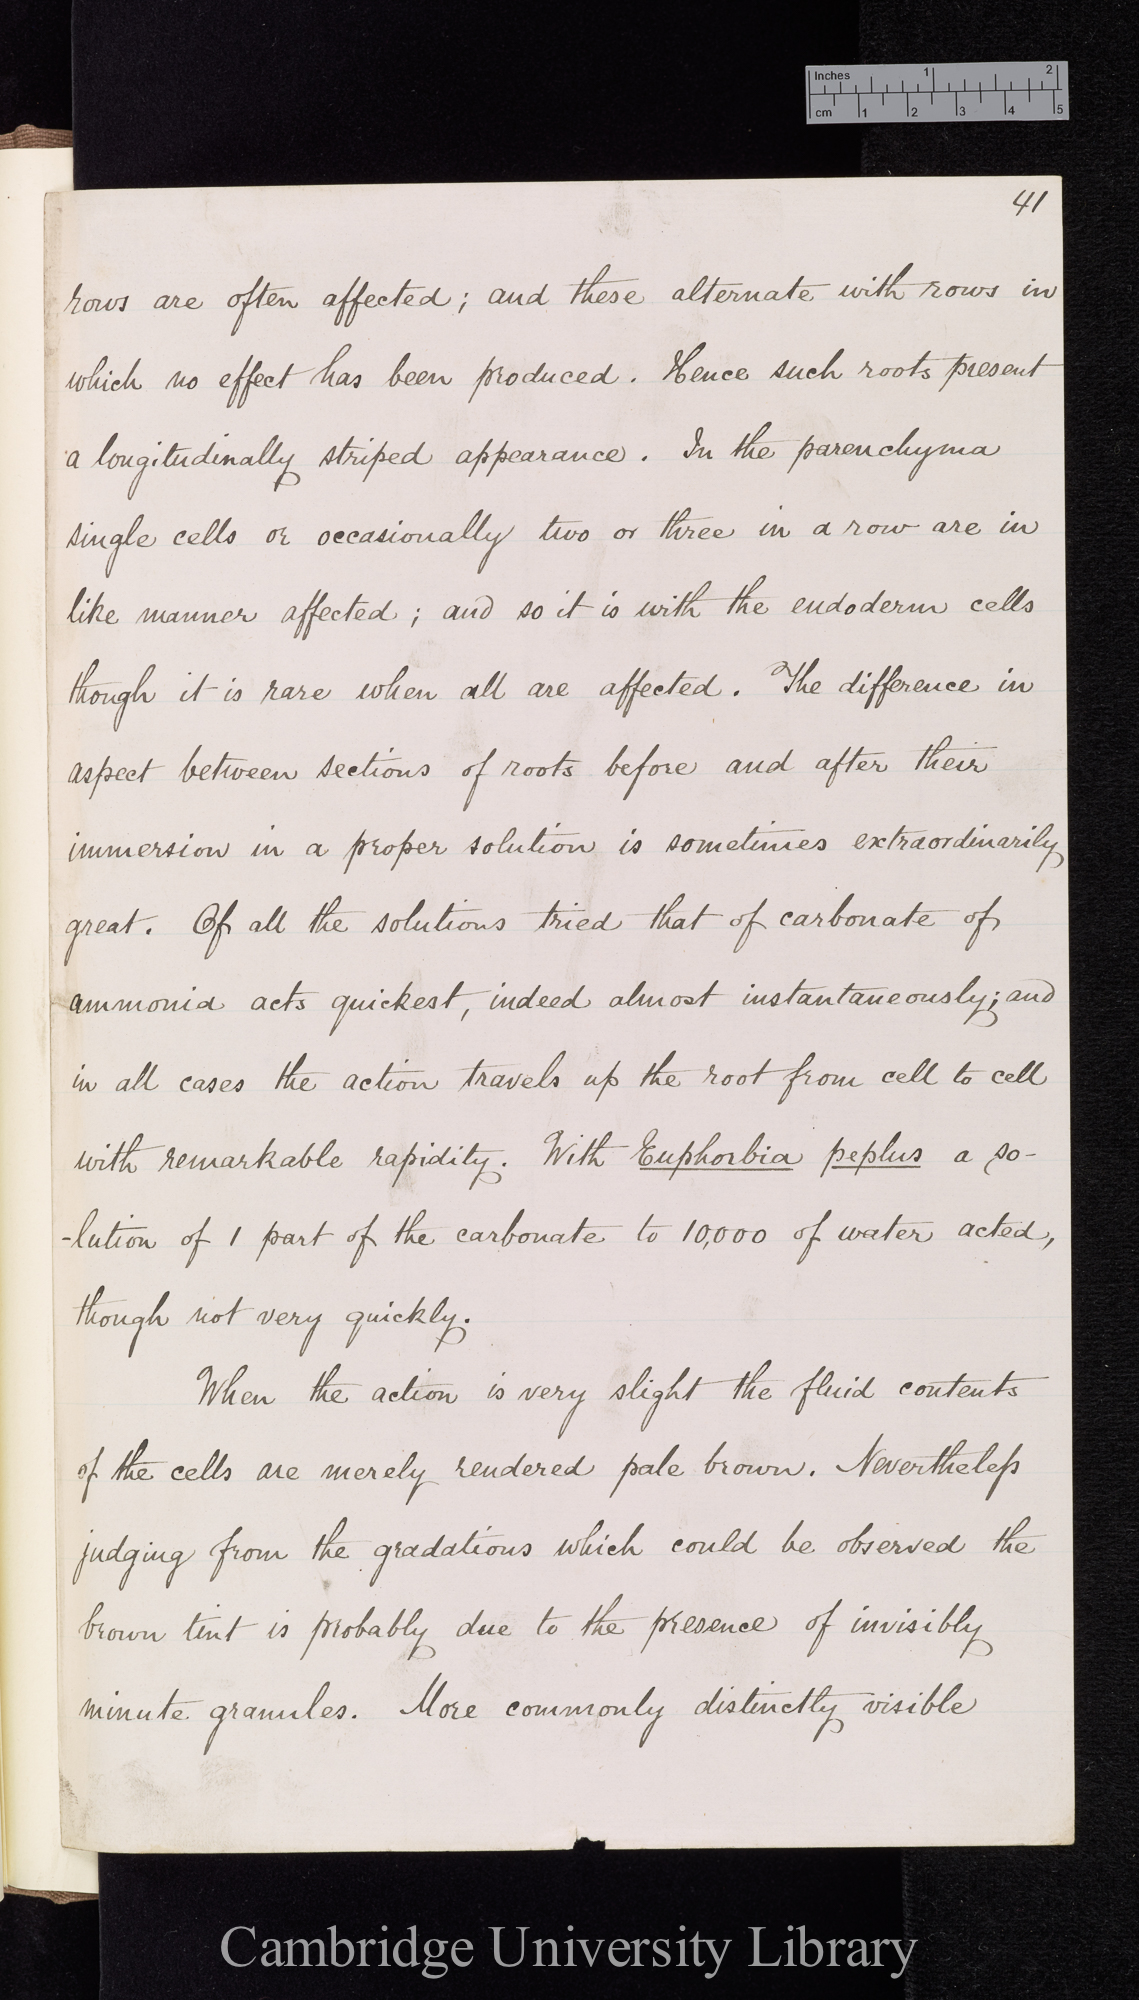 Inches 1 2
cm 1 2 3 4 5
41
rows are often affected; and these alternate with rows in
which no effect has been produced. Hence such roots present
a longitudinally striped appearance. In the parenchyma
single cells or occasionally two or three in a row are in
like manner affected; and so it is with the endoderm cells
though it is rare when all are affected. The difference in
aspect between sections of roots before and after their
immersion in a proper solution is sometimes extraordinarily
great. Of all the solutions tried that of carbonate of
ammonia acts quickest, indeed almost instantaneously; and
in all cases the action travels up the root from cell to cell
with remarkable rapidity. With Euphorbia peplus a so-
-lution of 1 part of the carbonate to 10,000 of water acted,
though not very quickly.
When the action is very slight the fluid contents
of the cells are merely rendered pale brown. Nevertheleſs
judging from the gradations which could be observed the
brown tint is probably due to the presence of invisibly
minute granules. More commonly distinctly visible
Cambridge University Library